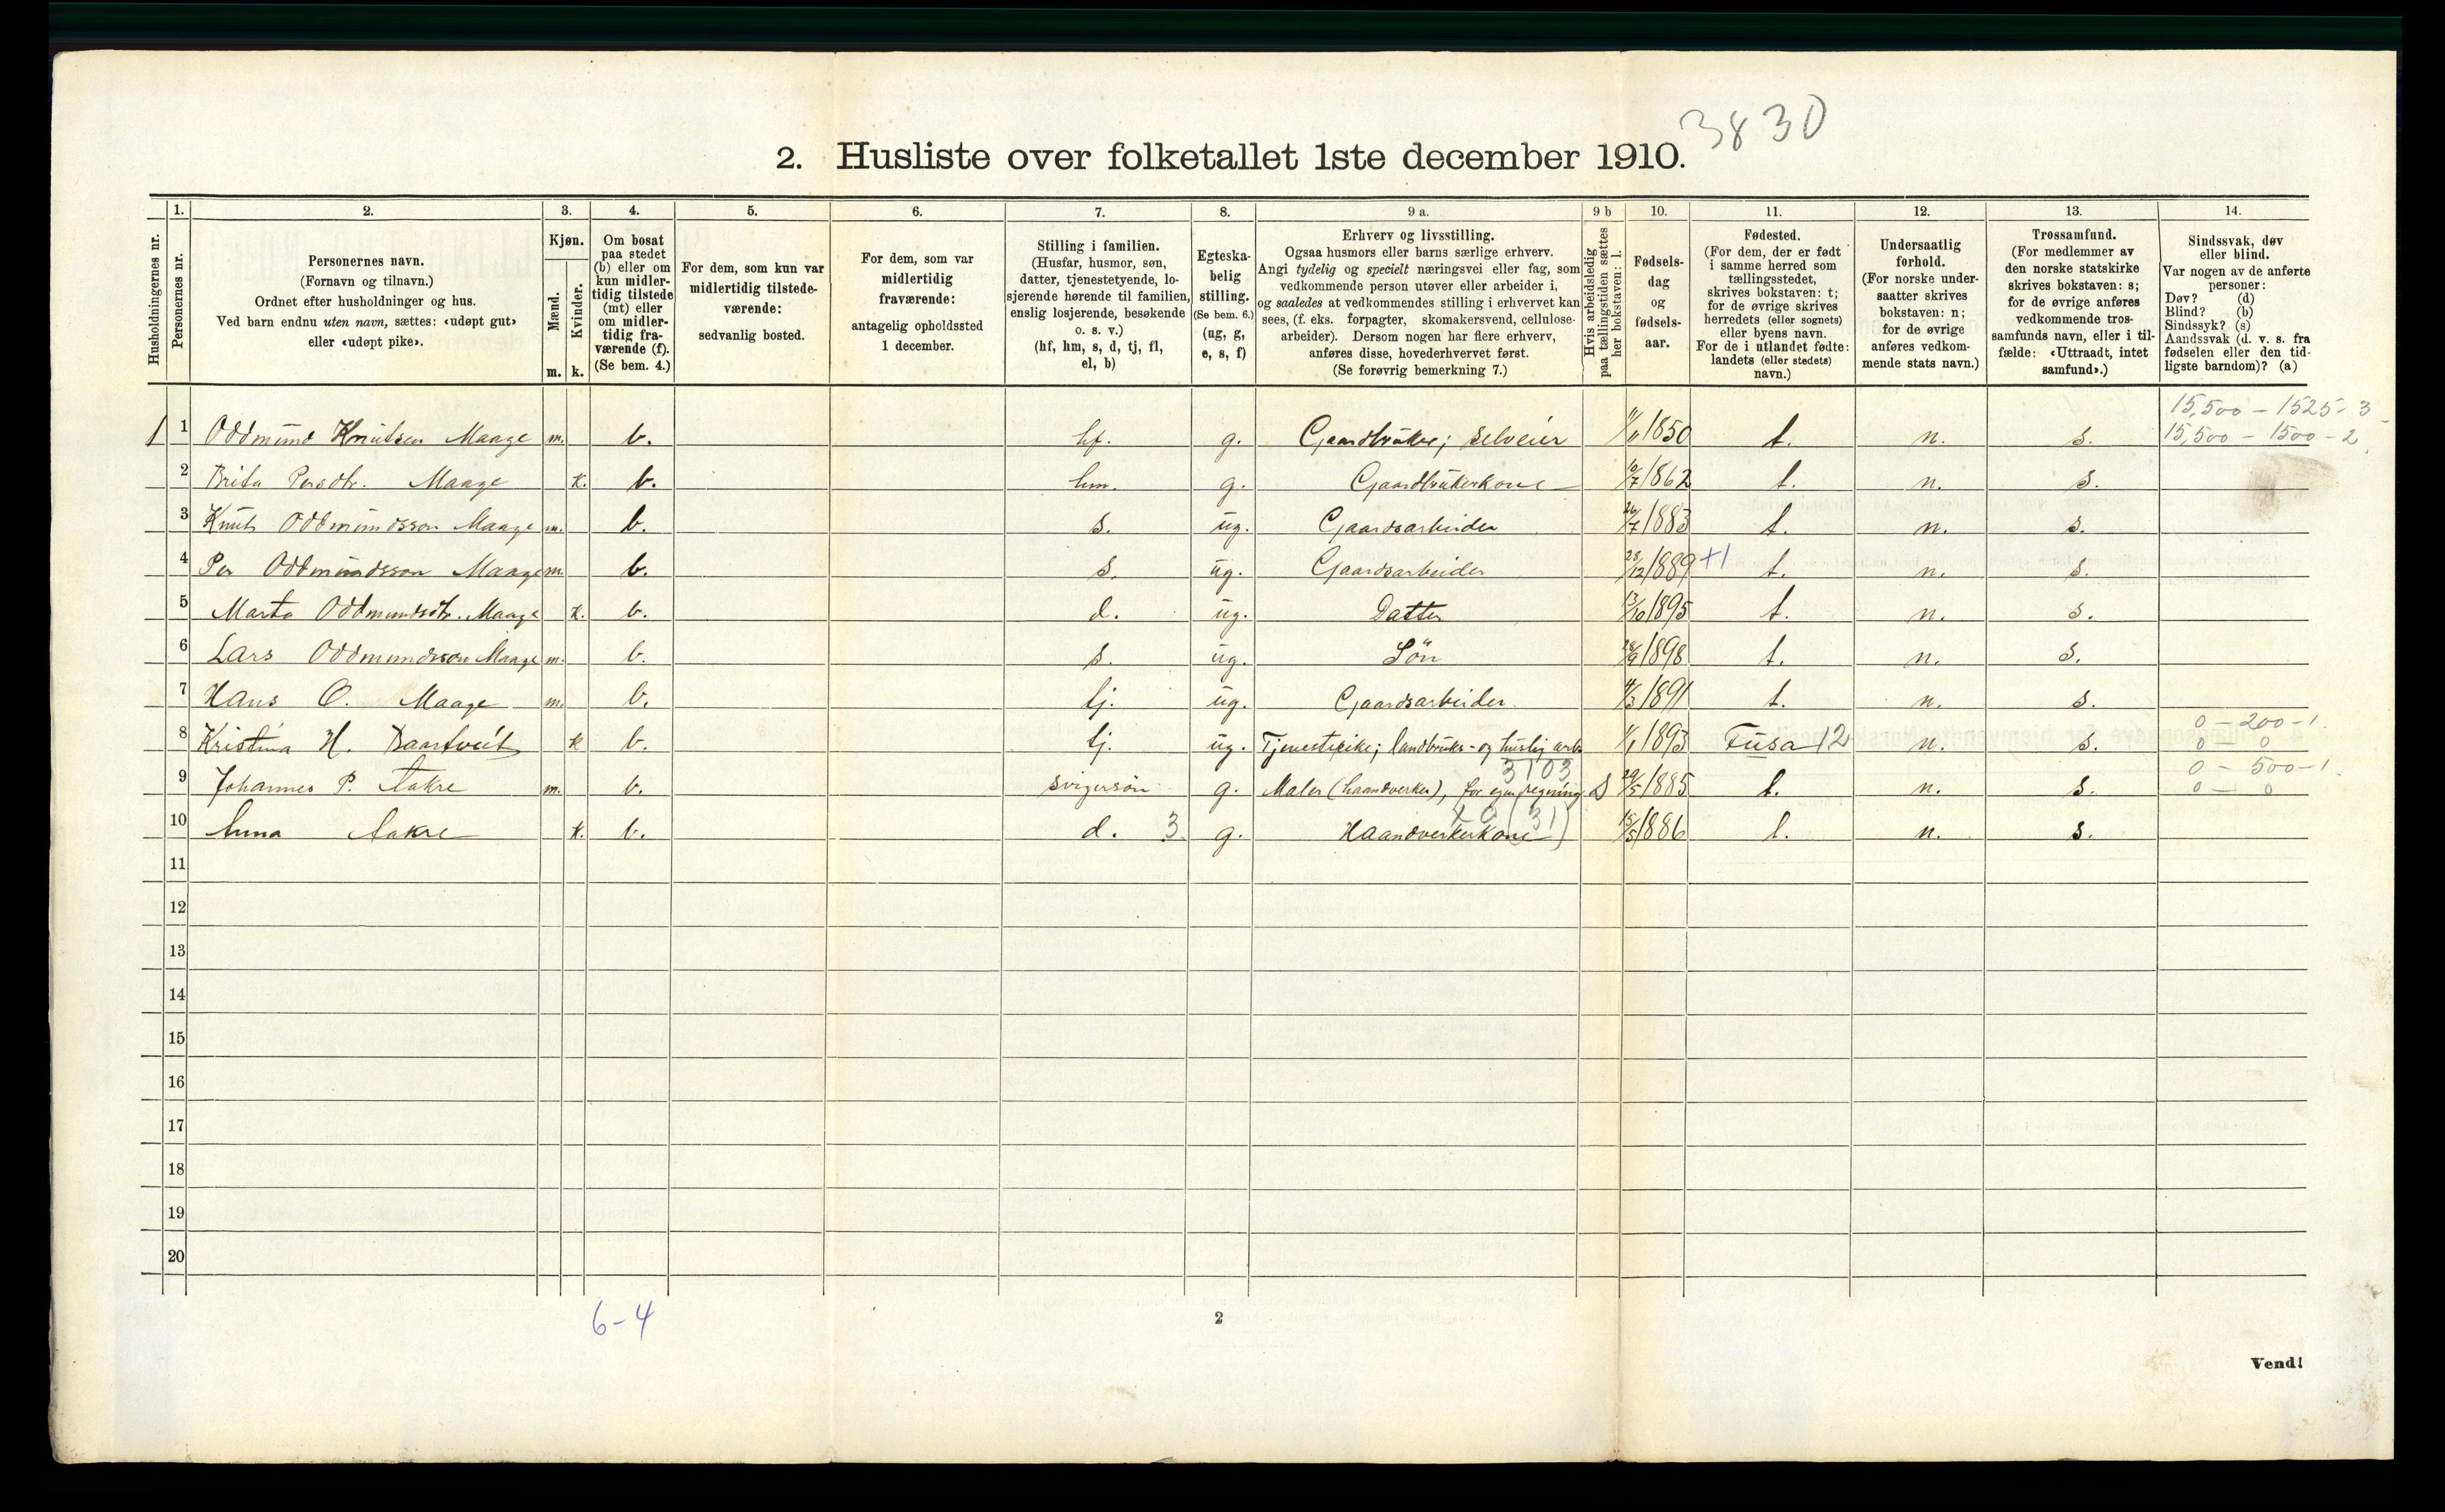 3830
2. Husliste over folketallet 1ste december 1910.
Husholdningernes nr.
1.
Personernes nr.
2.
Personernes navn.
(Fornavn og tilnavn.)
Ordnet efter husholdninger og hus.
Ved barn endnu uten navn, sættes: «udøpt gut»
eller «udøpt pike».
3.
Kjøn.
Mænd.
Kvinder.
m. k.
4.
Om bosat
paa stedet
(b) eller om
kun midler-
tidig tilstede
(mt) eller
om midler-
tidig fra-
værende (f).
(Se bem. 4.)
5.
For dem, som kun var
midlertidig tilstede-
værende:
sedvanlig bosted.
6.
For dem, som var
midlertidig
fraværende:
antagelig opholdssted
1 december.
7.
Stilling i familien.
(Husfar, husmor, søn,
datter, tjenestetyende, lo-
sjerende hørende til familien,
enslig losjerende, besøkende
o. s. v.)
(hf, hm, s, d, tj, fl,
el, b)
8.
Egteska-
belig
stilling.
(Se bem. 6.)
(ug, g,
e, s, f)
9 a.
Erhverv og livsstilling.
Ogsaa husmors eller barns særlige erhverv.
Angi tydelig og specielt næringsvei eller fag, som
vedkommende person utøver eller arbeider i,
og saaledes at vedkommendes stilling i erhvervet kan
sees, (f. eks. forpagter, skomakersvend, cellulose-
arbeider). Dersom nogen har flere erhverv,
anføres disse, hovederhvervet først.
(Se forøvrig bemerkning 7.)
9 b
Hvis arbeidsledig
paa tællingstiden sættes
her bokstaven: l.
10.
Fødsels-
dag
og
fødsels-
aar.
11.
Fødested.
(For dem, der er født
i samme herred som
tællingsstedet,
skrives bokstaven: t;
for de øvrige skrives
herredets (eller sognets)
eller byens navn.
For de i utlandet fødte:
landets (eller stedets)
navn.)
12.
Undersaatlig
forhold.
(For norske under-
saatter skrives
bokstaven: n;
for de øvrige
anføres vedkom-
mende stats navn.)
13.
Trossamfund.
(For medlemmer av
den norske statskirke
skrives bokstaven: s;
for de øvrige anføres
vedkommende tros-
samfunds navn, eller i til-
fælde: «Uttraadt, intet
samfund».)
14.
Sindssvak, døv
eller blind.
Var nogen av de anførte
personer:
Døv? (d)
Blind? (b)
Sindssyk? (s)
Aandssvak (d. v. s. fra
fødselen eller den tid-
ligste barndom)? (a)
15,500 - 1525 - 3
1 1 Oddmund Knutsen Maage m. b. hf. g. Gaardbruker; Selveier 1850 t. n. s. 15,500 - 1500 - 2
2 Brita Persdtr. Maage k. b. hm. g. Gaardbrukerkone 10/7 1862 t. n. s.
3 Knut Oddmundsson Maage m. b. s. ug. Gaardsarbeider 26/7 1883 t. n. s.
4 Per Oddmundsson Maage m. b. s. ug. Gaardsarbeider 28/12 1889 +1 t. n. s.
5 Marta Oddmundsdtr. Maage k. b. d. ug. Datter 13/10 1895 t. n. s.
6 Lars Oddmundsson Maage m. b. s. ug. Søn 28/9 1898 t. n. s.
7 Hans O. Maage m. b. tj. ug. Gaardsarbeider. 1891 t. n. s.
0 - 200 - 1.
8 Kristina H. k b. tj. ug. Tjenestepike; landbruks- og huslig arb. 1/1 1893 Fusa 12 n. s. 0 - 0
3103 0 - 500 - 1.
9 Johannes P. Aakre m. b. svigersøn g. Maler (haandverker), for egen regning 29/5 1885 t. n. s. 0 - 0
10 Anna Aakre k. b. d. 3 g. Haandverkerkone (31) 15/5 1886 t. n. s.
11
12
13
14
15
16
17
18
19
20
6-4
2
Vend!